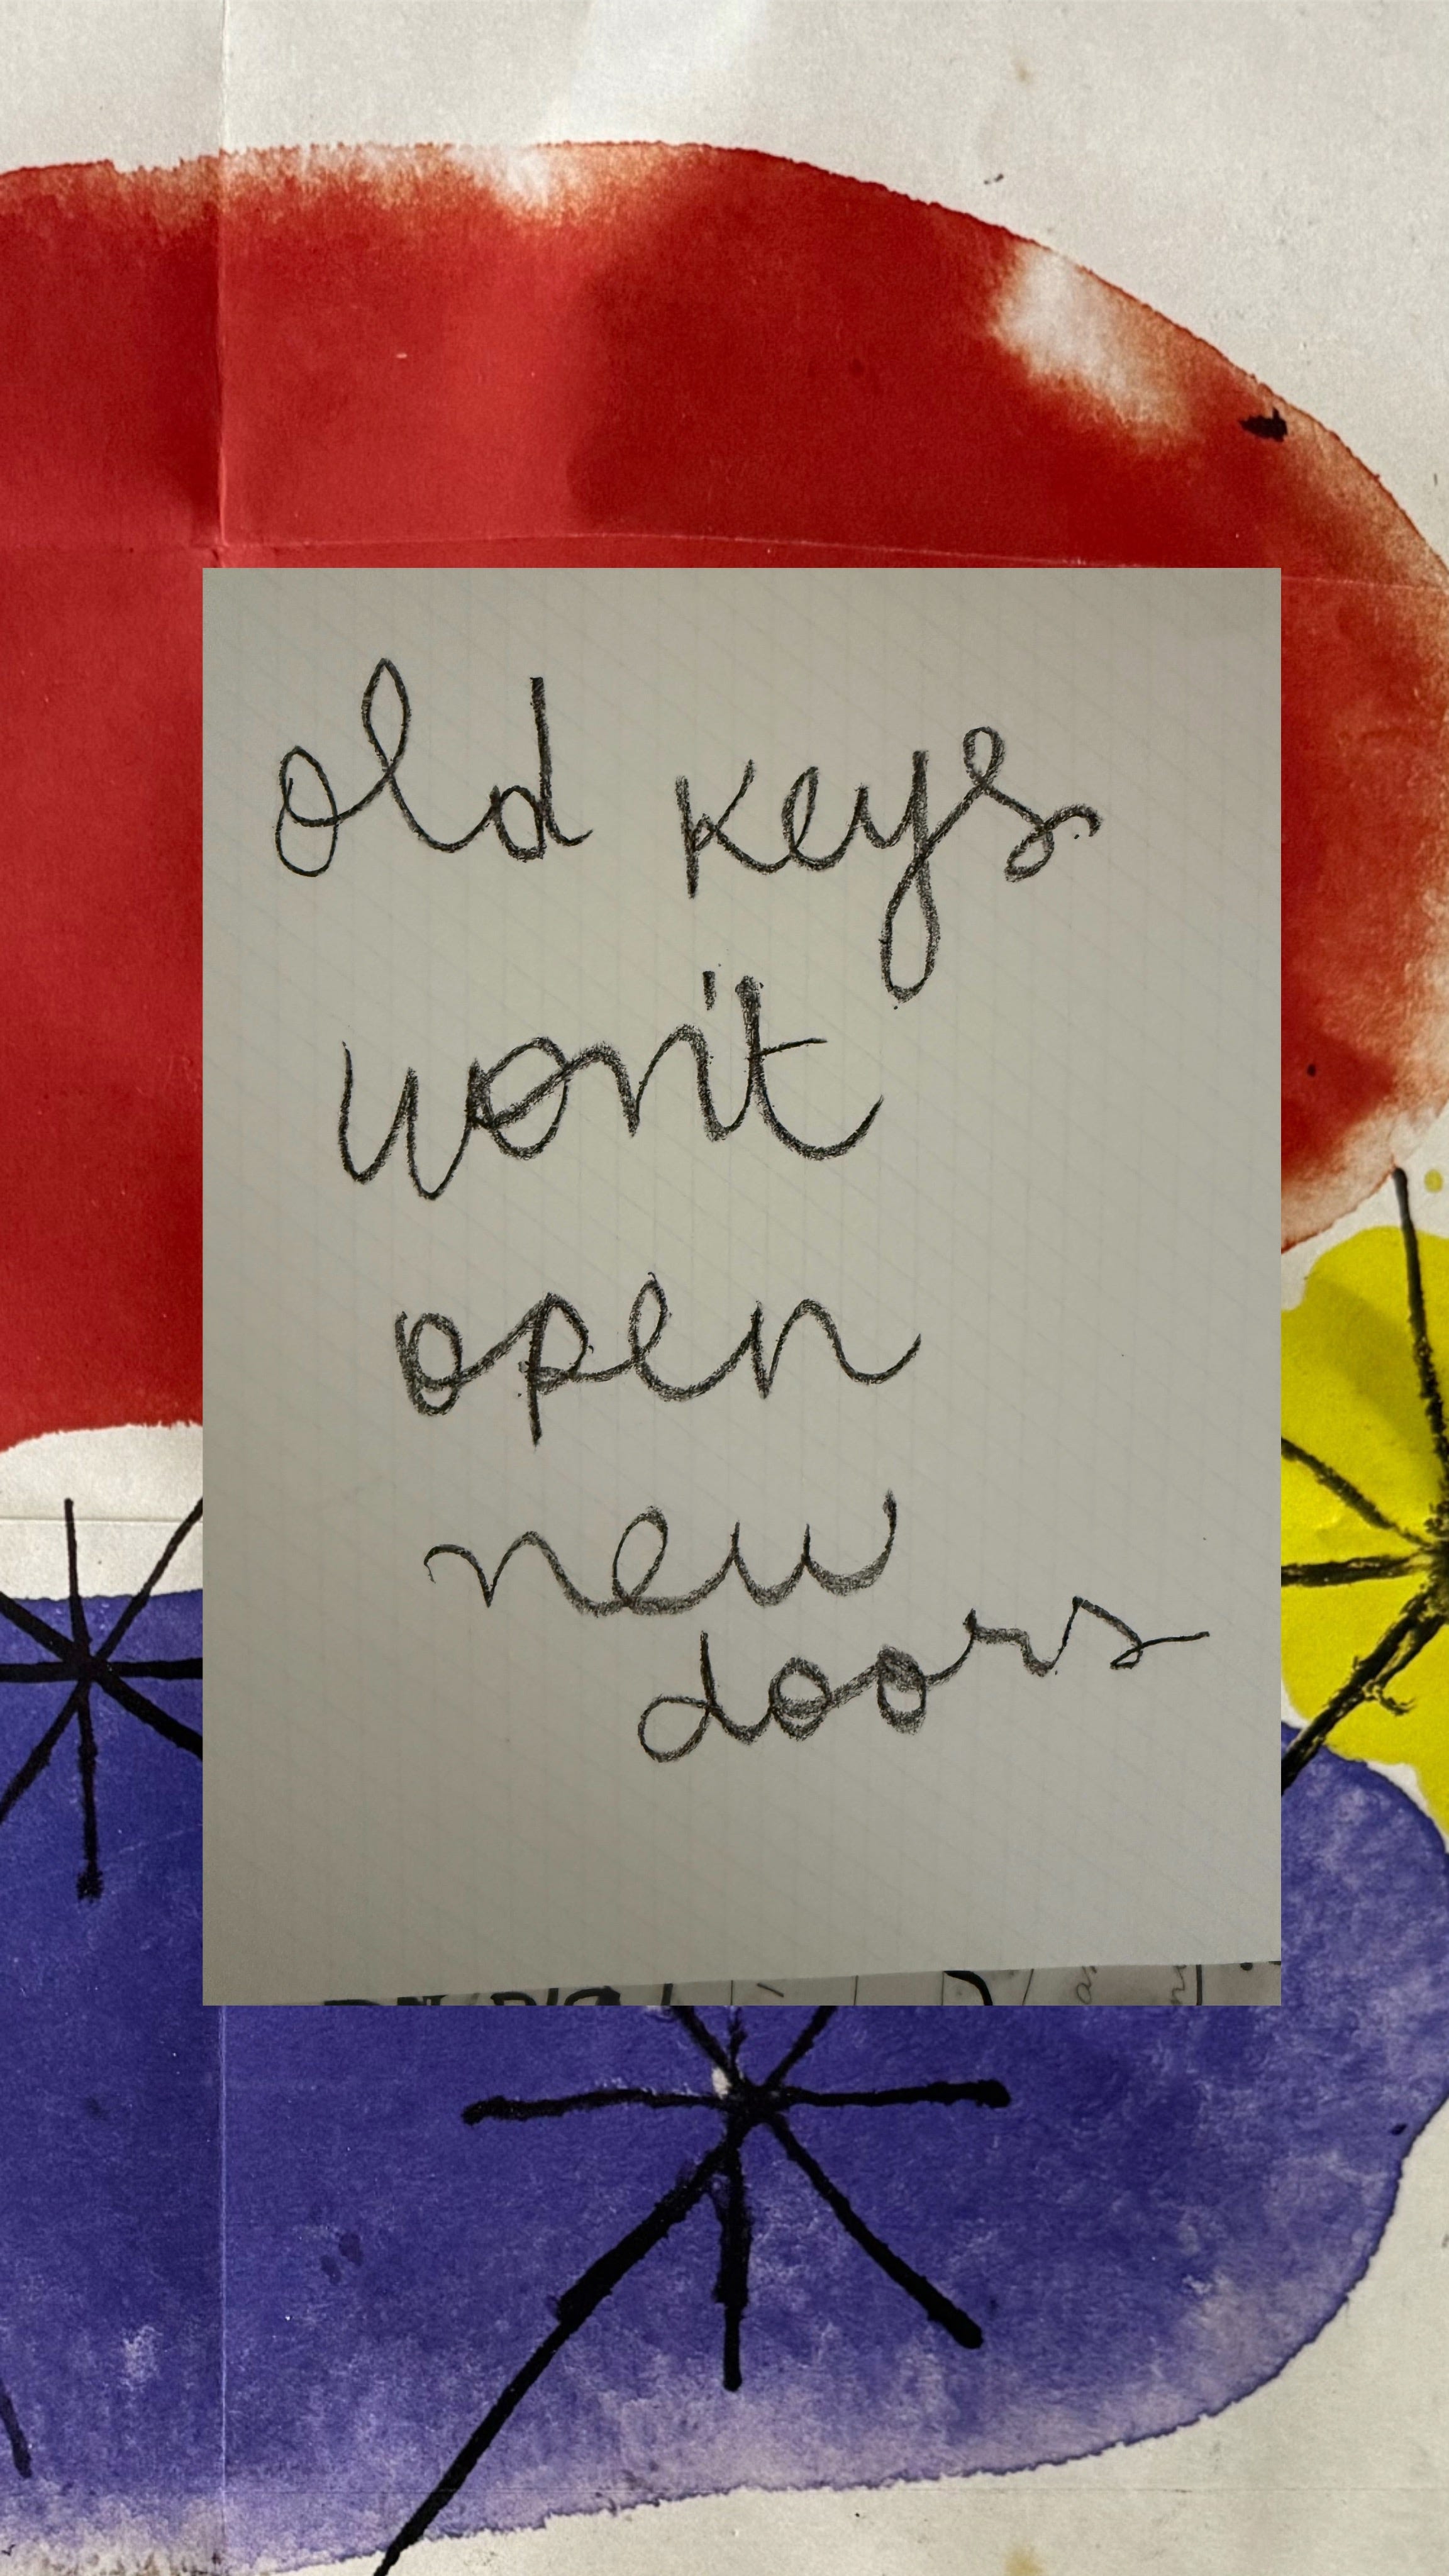 old keys
won't
open
new
doors